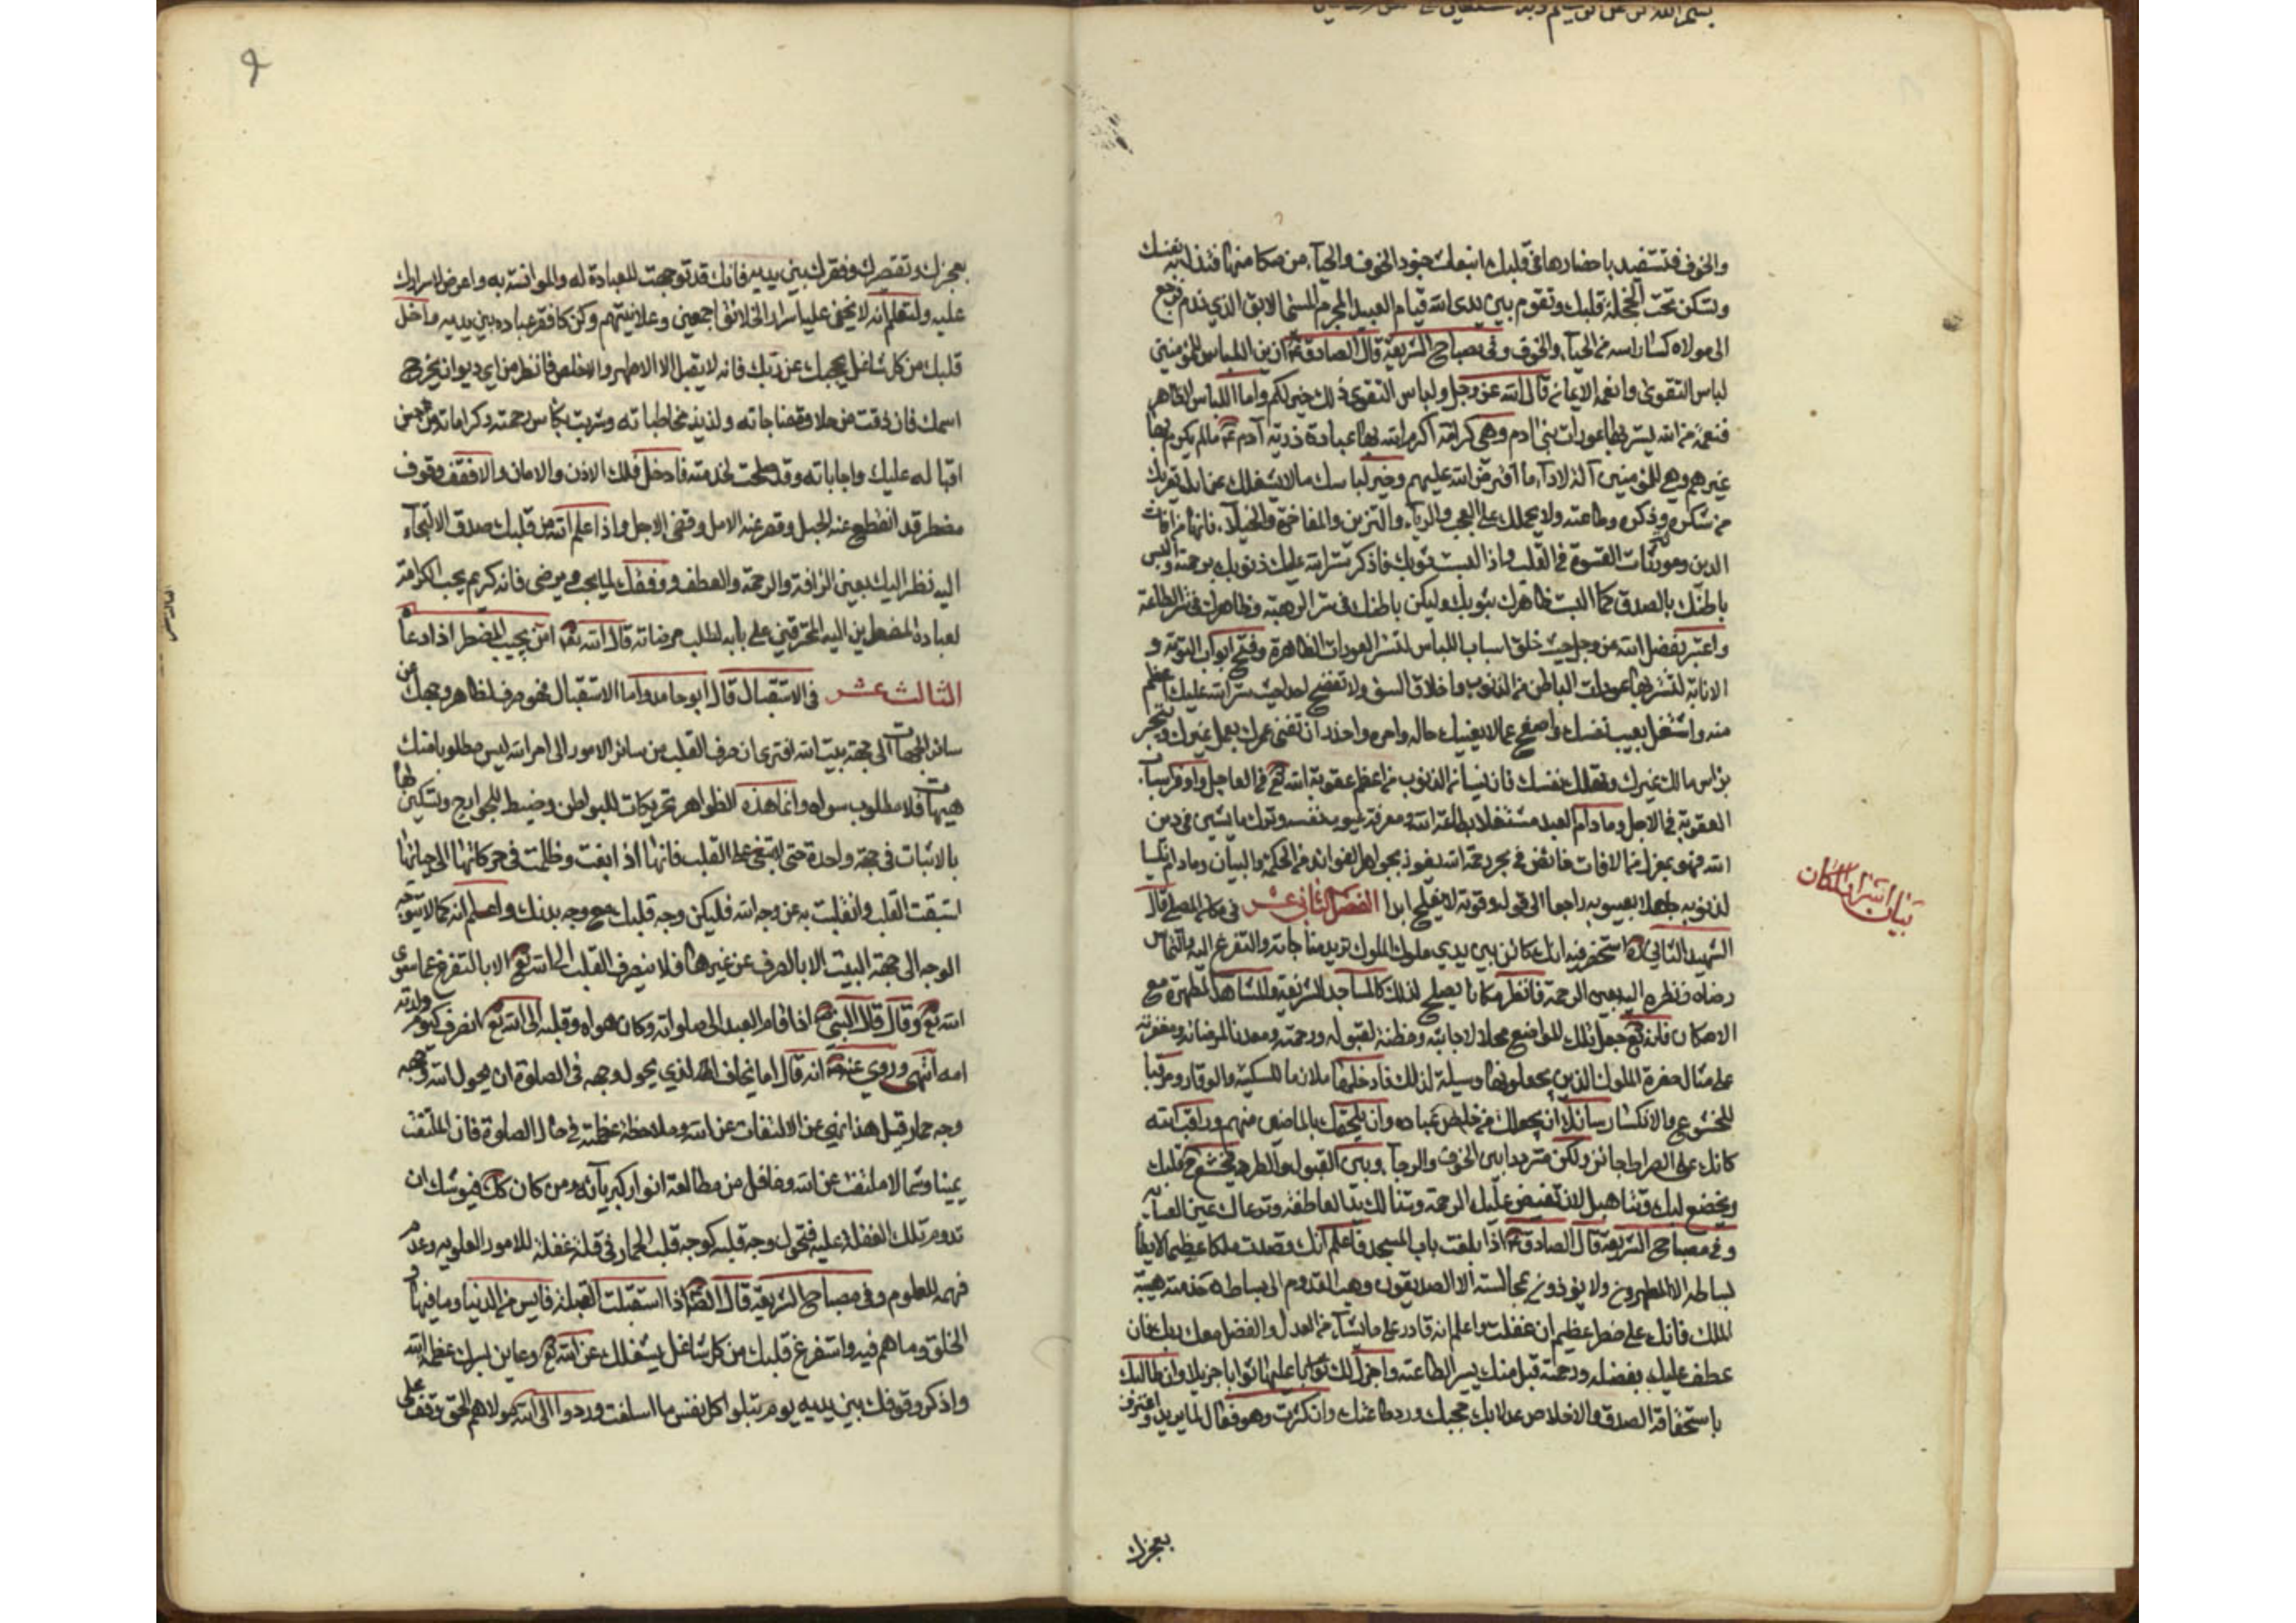 والخوف فتستفيد باحضارها في قلبك انبعاث جنود الخوف والحيآء من مكامنها فتذل به نفسك
وتسكن تحت الخجلة قلبك وتقوم بين يدى الله قيام العبيد المجرم المسئ الابق الذي ندم فرجع
الى مولاه ناكسا راسه من الحيآء والخوف وفي مصباح الشريعة قال الصادق ع ازين اللباس للمؤمنين
لباس التقوى وانعمه الايمان قال الله عز وجل ولباس التقوى ذلك خير لكم واما اللباس الظاهر
فنعمة من الله يستر بها عورات بنى ادم وهى كرامة اكرم الله بها عباده ذرية آدم ع ما لم يكرم بها
غيرهم وهي للمؤمنين آلة لادآء ما افترض الله عليهم وخير لباسك ما لا يشغلك عن الله بل يقربك
من شكره وذكره وطاعته ولا يحملك على العجب والريآء والتزين والمفاخرة والخيلآء فانها من آفات
الدين ومورثات القسوة في القلب واذا لبست ثوبك فاذكر ستر الله عليك ذنوبك برحمته والبس
باطنك بالصدق كما البست ظاهرك بثوبك وليكن باطنك في ستر الرهبة وظاهرك في ستر الطاعة
واعتبر بفضل الله عز وجل حيث خلق اسباب اللباس لتستر العورات الظاهرة وفتح ابواب التوبة و
الانابة لتستر بها عورات الباطن من الذنوب واخلاق السوء ولا تفضح احدا حيث ستر الله عليك اعظم
منه واشتغل بعيب نفسك واصفح عما لا يعنيك حاله وامره واحذر ان تفنى عمرك بعمل غيرك ويتجر
براس مالك غيرك وتهلك نفسك فان نسيان الذنوب من اعظم عقوبة الله تع في العاجل واوفر اسباب
العقوبة في الاجل وما دام العبد مشتغلا بطاعة الله ومعرفة عيوب نفسه وترك ما يشين في دين
الله فهو بمعزل عن الافات خائض في بحر رحمة الله يفوز بجواهر الفوائد من الحكمة والبيان وما دام ناسيا
لذنوبه جاهلا بعيوبه راجعا الى حوله وقوته لا يفلح ابدا الفصل الثاني عشر في مكان المصلى قال
الشهيد الثاني ره استحضر فيه انك كائن بين يدي ملوك الملوك تريد مناجاته والتضرع اليه والتماس
رضاه ونظره اليك بعين الرحمة فانظر مكانا يصلح لذلك كالمساجد الشريفة والمشاهد المطهرة مع
الامكان فانه تع جعل تلك المواضع محلا لاجابته ومظنة لقبوله ورحمته ومعدنا لمرضاته ومغفرته
على مثال حضرة الملوك الذين يجعلونها وسيلة لذلك فادخلها ملازما للسكينة والوقار ومراقبا
للخشوع والانكسار سائلا ان يجعلك من خلص عباده وان يلحقك بالماضين منهم وراقب الله
كانك على الصراط جائز وكن مترددا بين الخوف والرجآء وبين القبول والطرد فيخشع ح قلبك
ويخضع لبك وتتاهل لان تفيض عليك الرحمة وتنالك يد العاطفة وترعاك عين العناية
وفي مصباح الشريعة قال الصادق ع اذا بلغت باب المسجد فاعلم انك قصدت ملكا عظيما لا يطأ
بساطه الا المطهرون ولا يؤذن لمجالسته الا الصديقون وهب القدوم الى بساط خدمته هيبة
الملك فانك على خطر عظيم ان غفلت واعلم انه قادر على ما يشآء من العدل والفضل معك وبك فان
عطف عليك بفضله ورحمته قبل منك يسير الطاعة واجزل لك عليها ثوابا جزيلا وان طالبك
باستحقاقه الصدق والاخلاص عدلا بك حجبك ورد طاعتك وان كثرت وهو فعال لما يريد واعترف
بعجزك
بيان اسرار المكان
بعجزك وتقصيرك وفقرك بين يديه فانك قد توجهت للعبادة له والموانسة به واعرض اسرارك
عليه ولتعلم انه لا يخفى عليه اسرار الخلائق اجمعين وعلانيتهم وكن كافقر عباده بين يديه واخل
قلبك من كل شاغل يحجبك عن ربك فانه لا يقبل الا الاطهر والاخلص فانظر من اي ديوان يخرج
اسمك فان ذقت من حلاوة مناجاته ولذيذ مخاطباته وشربت بكاس رحمته وكراماته من حسن
اقباله عليك واجاباته وقد صلحت لخدمته فادخل فلك الاذن والامان والا فقف وقوف
مضطر قد انقطع عنه الحيل وقصر عنه الامل وقضى الاجل واذا علم الله من قلبك صدق الالتجآء
اليه نظر اليك بعين الرافة والرحمة والعطف ووفقك لما يحب ويرضى فانه كريم يحب الكرامة
لعباده المضطرين اليه المحترقين على بابه لطلب مرضاته قال الله تع امن يجيب المضطر اذا دعاه
الثالث عشر في الاستقبال قال ابو حامد واما الاستقبال فهو صرف لظاهر وجهك عن
سائر الجهات الى جهة بيت الله افترى ان صرف القلب من سائر الامور الى امر الله ليس مطلوبا منك
هيهات فلا مطلوب سواه وانما هذه الظواهر تحريكات للبواطن وضبط للجوارح وتسكين لها
بالاثبات في جهة واحدة حتى لا تبغى على القلب فانها اذا بغت وظلمت في حركاتها الى جهاتها
استتبعت القلب وانقلبت به عن وجه الله فليكن وجه قلبك مع وجه بدنك واعلم انه كما لا يتوجه
الوجه الى جهة البيت الا بالصرف عن غيرها فلا ينصرف القلب الى الله تع الا بالتفرغ عما سوى
الله تع وقال قال النبي ص اذا قام العبد الى صلوته وكان هواه وقلبه الى الله تع انصرف كيوم ولدته
امه انتهى وروي عنه ص انه قال اما يخاف الذي يحول وجهه في الصلوة ان يحول الله وجهه
وجه حمار قيل هذا نهي عن الالتفات عن الله وملاحظة عظمته في حال الصلوة فان الملتفت
يمينا وشمالا ملتفت عن الله وغافل من مطالعة انوار كبريآئه ومن كان كك فيوشك ان
تدوم تلك الغفلة عليه فتحول وجه قلبه كوجه قلب الحمار في قلة غفلة للامور العلوية وعدم
فهمه للعلوم وفي مصباح الشريعة قال الص ع اذا استقبلت القبلة فايس من الدنيا وما فيها و
الخلق وما هم فيه واستفرغ قلبك من كل شاغل يشغلك عن الله تع وعاين بسرك عظمة الله
واذكر وقوفك بين يديه يوم تبلوا كل نفس ما اسلفت وردوا الى الله مولاهم الحق وقف على